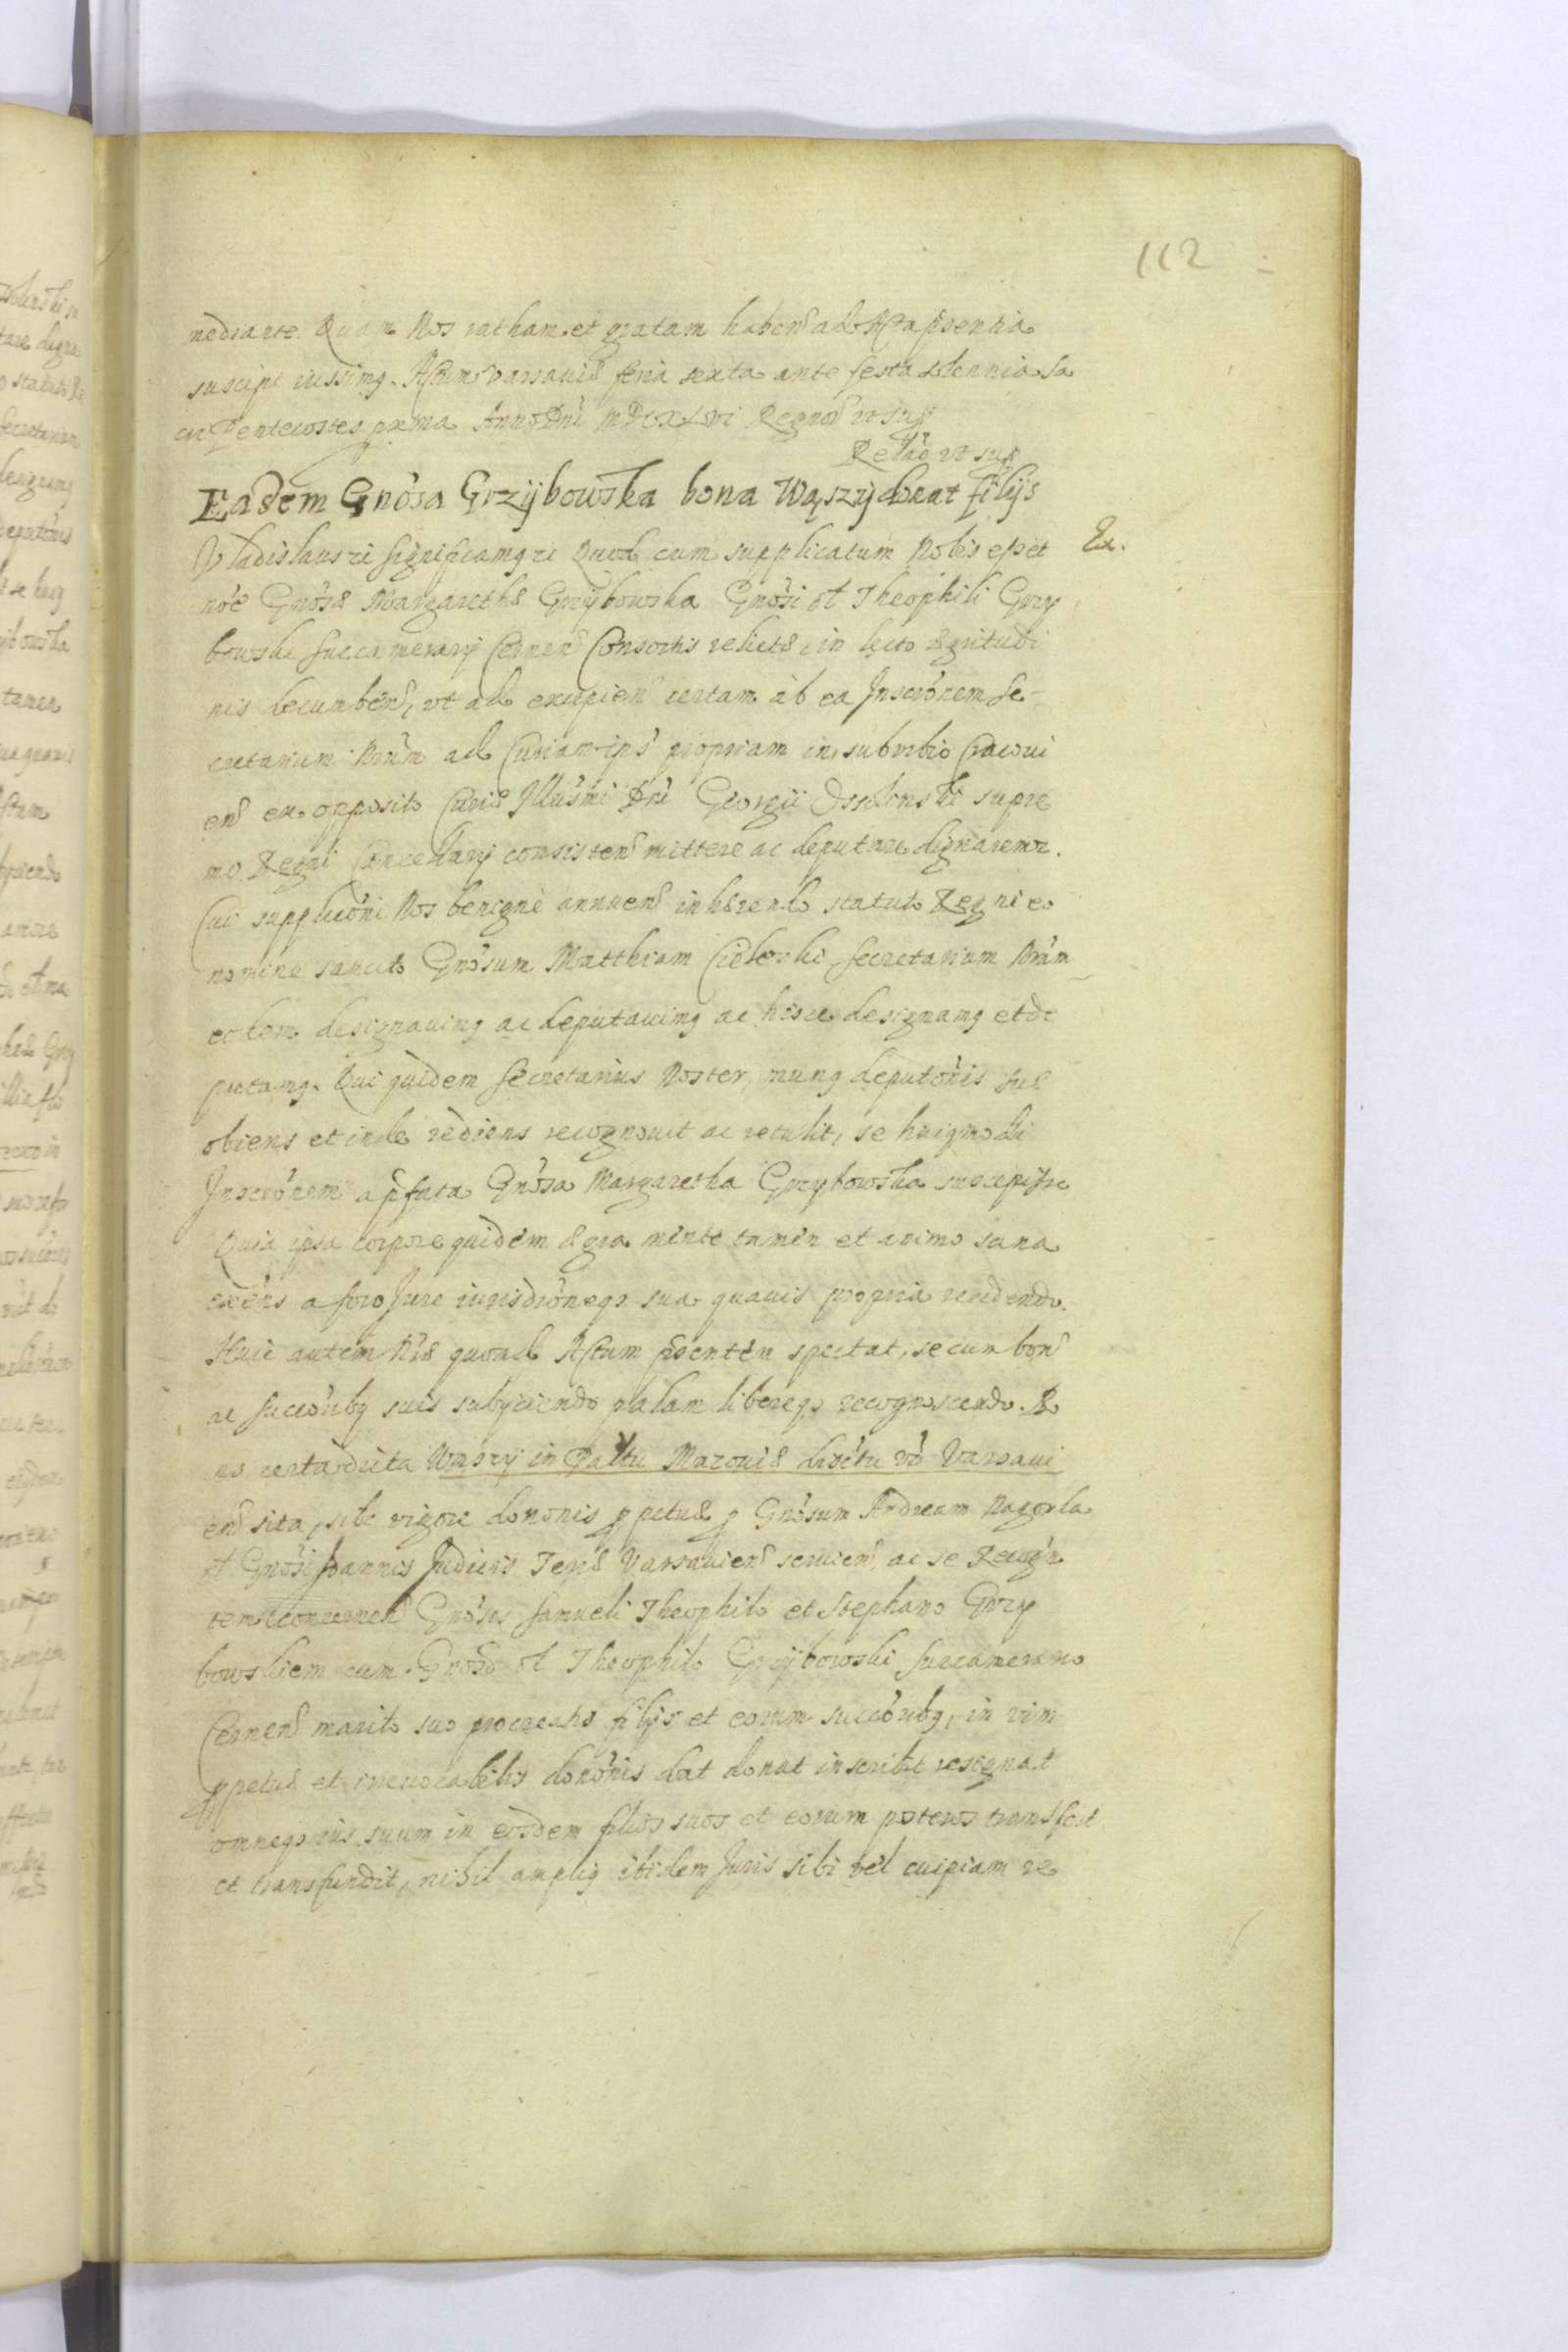 112
mediante. Quam Nos ratham et gratam haben̄ ad Acta p̄sentia
suscipi iussimq. Actum Varsauiӕ feria sexta ante festa solennia Sa
cri Pentecostes proxima Anno Dn̄i MDCXLVI Regnor̄ ut sup̄
Relāo ut sup̄
Eadem Gnōsa Grzybowska bona Wąszy donat filijs
Ex.
Vladislaus etc Significamq etc Quod cum supplicatum Nobis esset
nōe Gnōsӕ Margarethӕ Grzybowska Gnōsi ol Theophili Grzy
bowski Succamerarij Cernen̄ Consortis relictӕ, in lecto ӕgritudi
nis decumben̄, ut ad excipien̄ certam ab ea Inscrōnem Se-
cretarium Nrūm ad Curiam ips̄ propriam in suburbio Cracoui
en̄ ex opposito Curiӕ Illūsmi Dn̄i Georgii Ossolinski supre
mo Regni Cancellarij consisten̄ mittere ac deputare dignaremr.
Cui supplicōni Nos benigne annuen̄ inhӕrendo statuto Regni eo
nomine sancito Gnōsum Matthiam Secretarium Nrūm
eodem designauimq ac deputauimq ac hisce designamq et de
putamq. Qui quidem Secretarius Noster, munq deputōnis suӕ
obiens et inde rediens recognouit ac retulit, se huiqmodi
Inscrōnem a p̄fata Gnōsa Margaretha Grzybowska suscepisse
Quia ipsa corpore quidem ӕgra mente tamen et animo sana
exēns a foro Jure iurisdrōneqr sua quauis propria recedendo.
Huic autem Nrӕ quoad Actum p̄sentem spectat, se cum bon̄
ac succōribq suis subijciendo palam libereqr recognoscendo. Bo
na certa dicta Wąszy in Pal̄tu Mazouiӕ distr̄tu vō Varsaui
en̄ sita, sibi vigore donōnis p̄petuӕ p̄ Gnōsum Andream
ol Gnōsi Joannis Judicis Terrӕ Varsauien̄ seruien̄, ac se Recogn̄
tem concernen̄ Gnōsis Samueli Theophilo et Stephano Grzy
bowskiem cum Gnōso ol Theophilo Grzybowski Succamerario
Cernen̄ marito suo procreatis filijs et eorum succōribq, in vim
p̄petuӕ et irreuocabilis donōnis dat donat inscribit resignat
omneqr ius suum in eosdem filios suos et eorum posteros transfert
et transfundit, nihil ampliq ibidem Juris sibi vel cuipiam re